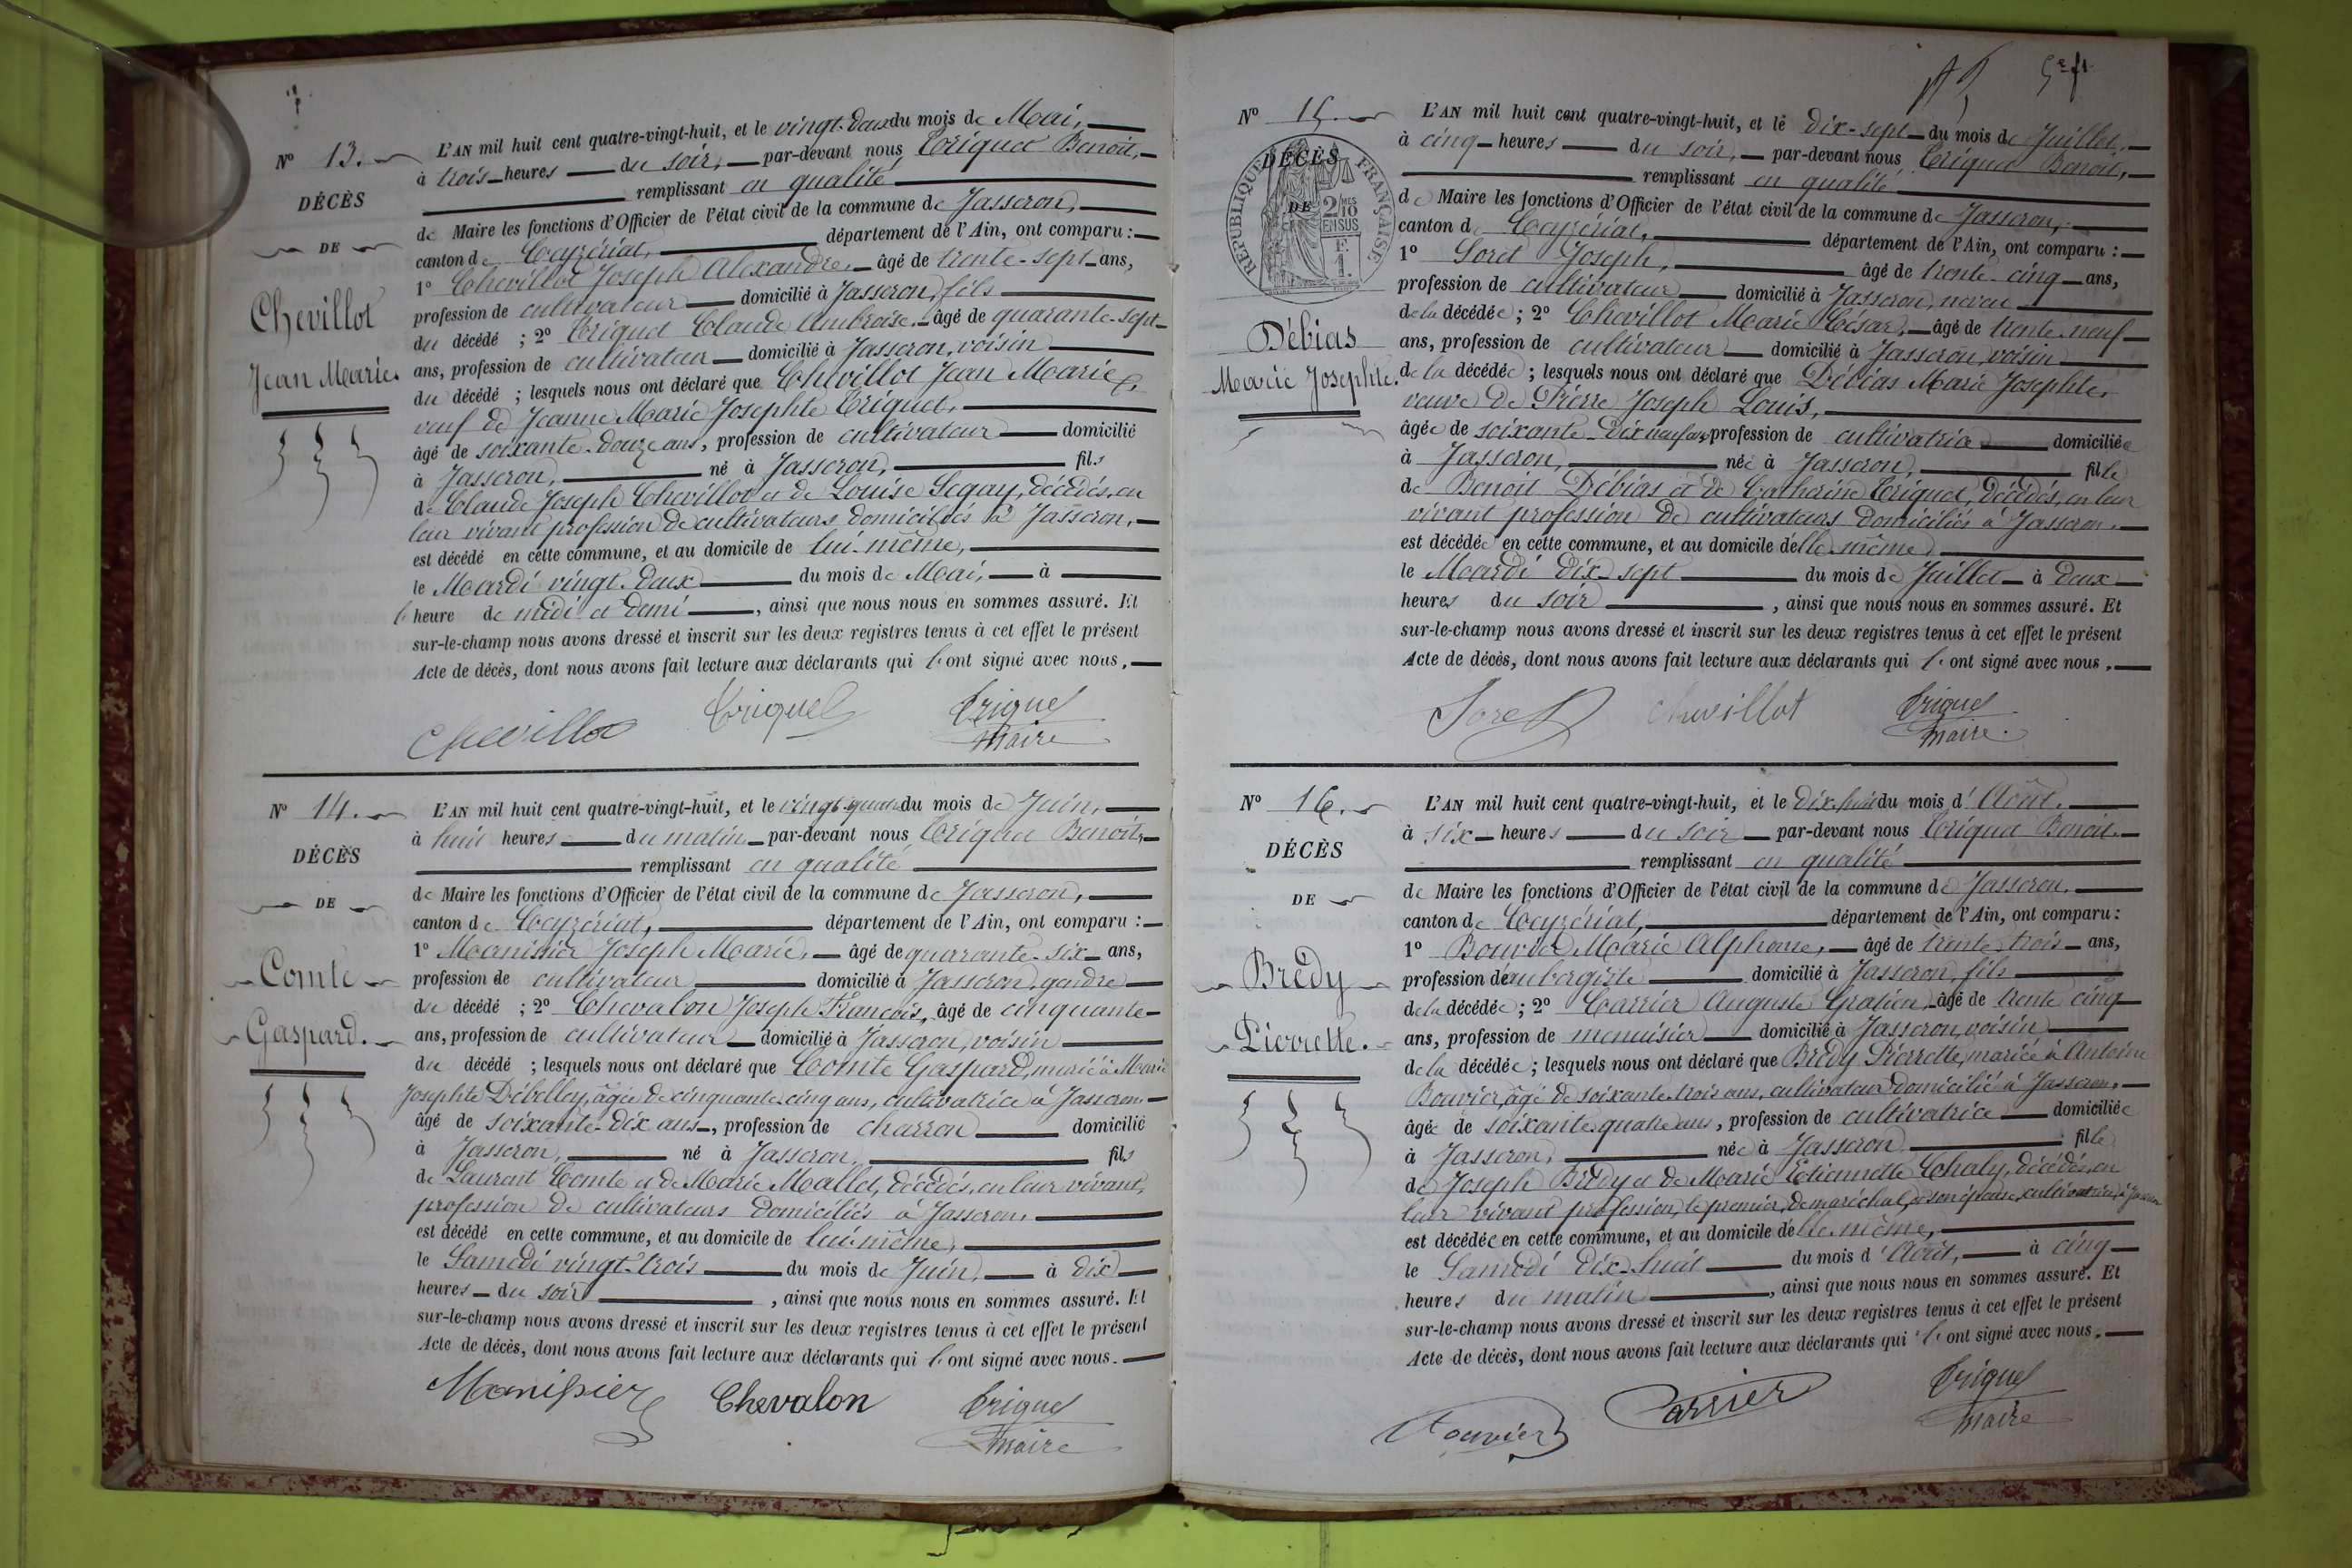 Nº 13.
DÉCÈS
DE
Chevillot
Jean Marie.
L'AN mil huit cent quatre-vingt-huit, et le vingt-deux du mois de Mai,
à trois heures du soir, par-devant nous Triquet Benoit,
remplissant en qualité
de Maire les fonctions d'Officier de l'état civil de la commune de Jasseron,
canton de Ceyzériat, département de l'Ain, ont comparu :
1º Chevillot Joseph Alexandre, âgé de trente-sept ans,
profession de cultivateur domicilié à Jasseron, fils
du décédé ; 2º Triquet Claude Ambroise, âgé de quarante-sept
ans, profession de cultivateur domicilié à Jasseron, voisin
du décédé ; lesquels nous ont déclaré que Chevillot Jean Marie,
veuf de Jeanne Marie Josephte Triquet,
âgé de soixante-douze ans, profession de cultivateur domicilié
à Jasseron, né à Jasseron, fils
de Claude Joseph Chevillot et de Louise Segay, décédés, en
leur vivant profession de cultivateurs domiciliés à Jasseron,
est décédé en cette commune, et au domicile de lui-même,
le Mardi vingt-deux du mois de Mai, à
heure de midi et demi, ainsi que nous nous en sommes assuré. Et
sur-le-champ nous avons dressé et inscrit sur les deux registres tenus à cet effet le présent
Acte de décès, dont nous avons fait lecture aux déclarants qui l'ont signé avec nous.
Chevillot Triquet Triquet
maire
Nº 14.
DÉCÈS
DE
Comte
Gaspard.
L'AN mil huit cent quatre-vingt-huit, et le vingt-quatre du mois de Juin,
à huit heures du matin par-devant nous Triquet Benoit,
remplissant en qualité
de Maire les fonctions d'Officier de l'état civil de la commune de Jasseron,
canton de Ceyzériat, département de l'Ain, ont comparu :
1º Monissier Joseph Marie, âgé de quarante-six ans,
profession de cultivateur domicilié à Jasseron, gendre
du décédé ; 2º Chevalon Joseph François, âgé de cinquante
ans, profession de cultivateur domicilié à Jasseron, voisin
du décédé ; lesquels nous ont déclaré que Comte Gaspard, marié à Marie
Josephte Débelley, âgée de cinquante cinq ans, cultivatrice à Jasseron
âgé de soixante-dix ans, profession de charron domicilié
à Jasseron, né à Jasseron, fils
de Laurent Comte et de Marie Mallet, décédés, en leur vivant,
profession de cultivateurs domiciliés à Jasseron,
est décédé en cette commune, et au domicile de lui-même,
le Samedi vingt-trois du mois de Juin, à dix
heures du soir, ainsi que nous nous en sommes assuré. Et
sur-le-champ nous avons dressé et inscrit sur les deux registres tenus à cet effet le présent
Acte de décès, dont nous avons fait lecture aux déclarants qui l'ont signé avec nous.
Monissier Chevalon Triquet
maire
Nº 15.
DÉCÈS
DE
RÉPUBLIQUE FRANÇAISE
2/10
EN SUS
F.
1.
Débias
Marie Josephte.
L'AN mil huit cent quatre-vingt-huit, et le dix-sept du mois de Juillet,
à cinq heures du soir, par-devant nous Triquet Benoit,
remplissant en qualité
de Maire les fonctions d'Officier de l'état civil de la commune de Jasseron,
canton de Ceyzériat, département de l'Ain, ont comparu :
1º Soret Joseph, âgé de trente-cinq ans,
profession de cultivateur domicilié à Jasseron, neveu
de la décédée ; 2º Chevillot Marie César, âgé de trente-neuf
ans, profession de cultivateur domicilié à Jasseron, voisin
de la décédée ; lesquels nous ont déclaré que Débias Marie Josephte,
veuve de Pierre Joseph Louis,
âgée de soixante-dix neuf ans, profession de cultivatrice domiciliée
à Jasseron, née à Jasseron, fille
de Benoit Débias et de Catherine Triquet, décédés, en leur
vivant profession de cultivateurs domiciliés à Jasseron,
est décédée en cette commune, et au domicile d'elle-même
le Mardi dix-sept du mois de Juillet à deux
heures du soir, ainsi que nous nous en sommes assuré. Et
sur-le-champ nous avons dressé et inscrit sur les deux registres tenus à cet effet le présent
Acte de décès, dont nous avons fait lecture aux déclarants qui l'ont signé avec nous.
Soret Chevillot Triquet
maire.
Nº 16.
DÉCÈS
DE
Brédy
Pierrette.
L'AN mil huit cent quatre-vingt-huit, et le dix-huit du mois d'Août,
à six heures du soir par-devant nous Triquet Benoit
remplissant en qualité
de Maire les fonctions d'Officier de l'état civil de la commune de Jasseron,
canton de Ceyzériat, département de l'Ain, ont comparu :
1º Bouvier Marie Alphonse, âgé de trente-trois ans,
profession d'aubergiste domicilié à Jasseron, fils
de la décédée ; 2º Carrier Auguste Gratien, âgé de trente cinq
ans, profession de menuisier domicilié à Jasseron, voisin
de la décédée ; lesquels nous ont déclaré que Brédy Pierrette, mariée à Antoine
Bouvier, âgé de soixante-trois ans, cultivateur domicilié à Jasseron,
âgée de soixante-quatre ans, profession de cultivatrice domiciliée
à Jasseron, née à Jasseron fille
de Joseph Brédy et de Marie Etiennette Chaly, décédés, en
leur vivant profession, le premier, de maréchal, et son épouse, cultivatrice, à Jasseron
est décédée en cette commune, et au domicile d'elle-même,
le Samedi dix-huit du mois d'Août, à cinq
heures du matin, ainsi que nous nous en sommes assuré. Et
sur-le-champ nous avons dressé et inscrit sur les deux registres tenus à cet effet le présent
Acte de décès, dont nous avons fait lecture aux déclarants qui l'ont signé avec nous.
Bouvier Carrier Triquet
maire